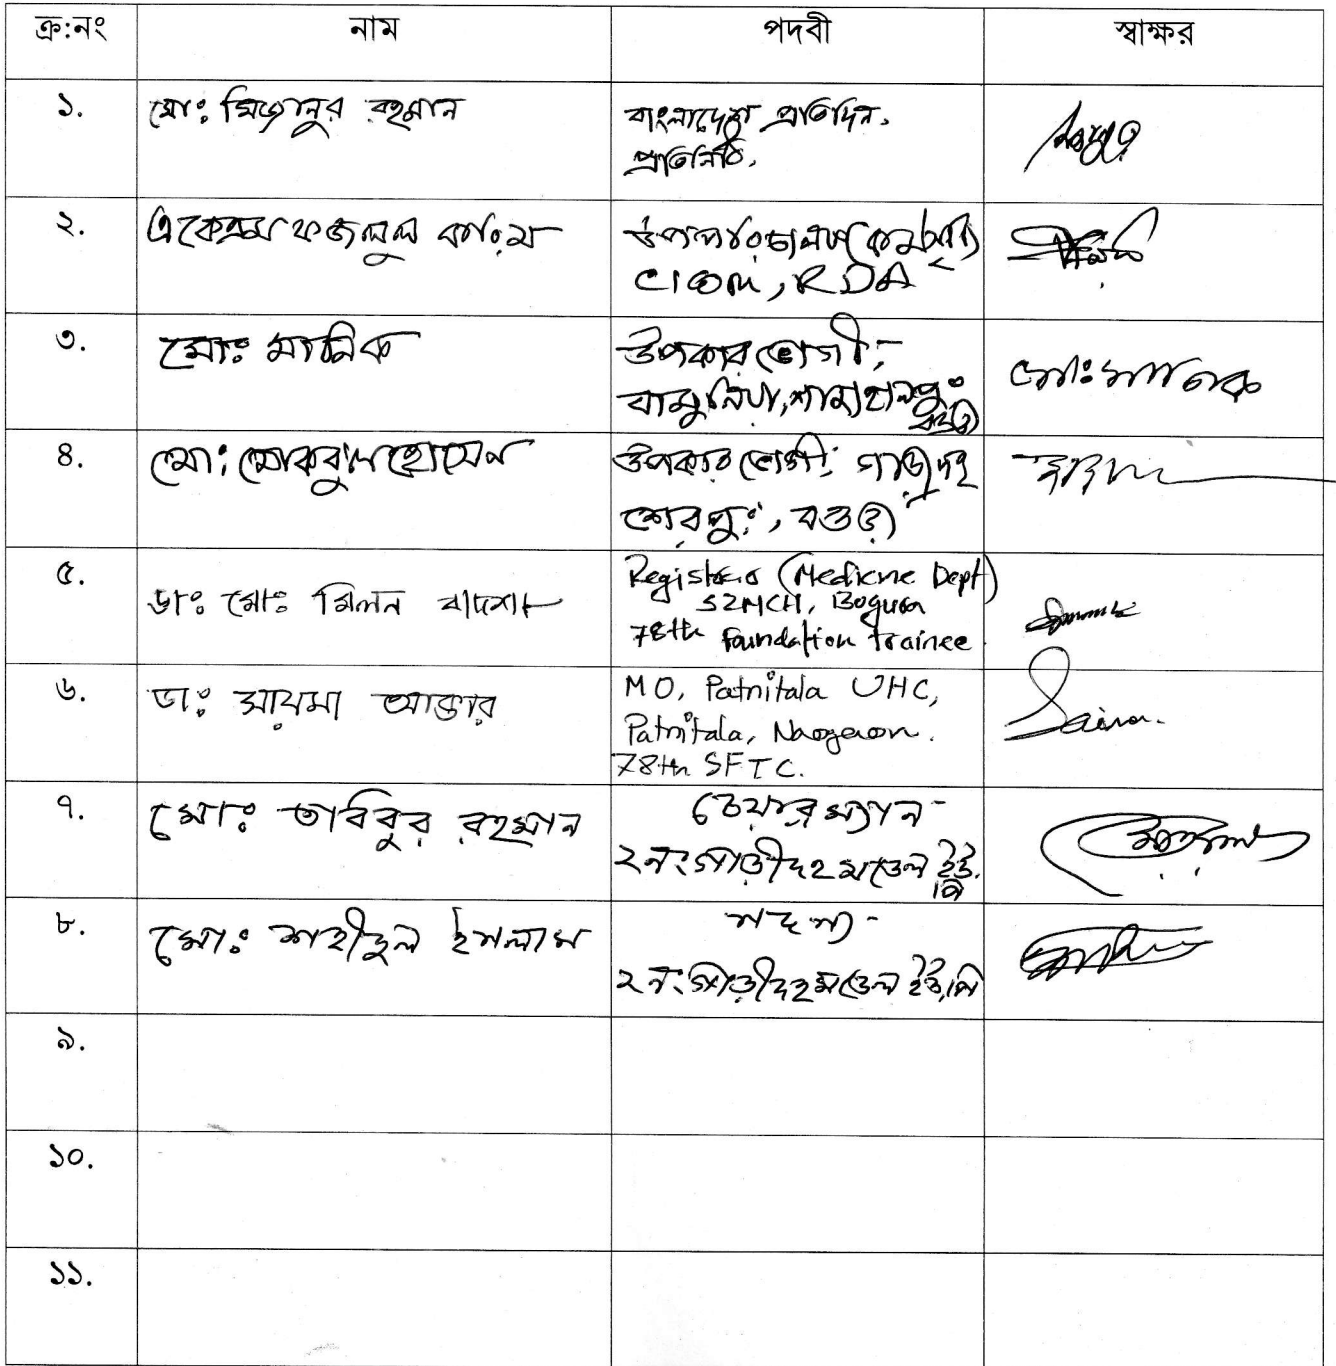 ক্র:নং নাম পদবী স্বাক্ষর
১. মোঃ মিজানুর রহমান বাংলাদেশ প্রতিদিন,
প্রতিনিধি,
২. একেএম ফজলুল করিম উপপরিচালক
CIWM, RDA
৩. মোঃ মানিক উপকার ভোগী, মোঃ মানিক
বামুনিয়া,
৪. মো: মোকবুল হোসেন উপকার ভোগী, গাড়ীদহ
শেরপুর, বগুড়া
৫. ডাঃ মোঃ মিলন বাদশা Registrar (Medicine Dept)
SZMCH, Bogura
78th foundation trainee
৬. ডাঃ সায়মা আক্তার MO, Patnitala UHC, Saima
Patnitala, Naogaon.
78th SFTC.
৭. মোঃ তবিবুর রহমান চেয়ারম্যান-
২নং গাড়ীদহ মডেল ইউ.
পি
৮. মোঃ শহীদুল ইসলাম সদস্য-
২নং গাড়ীদহ মডেল ইউ,পি
৯.
১০.
১১.